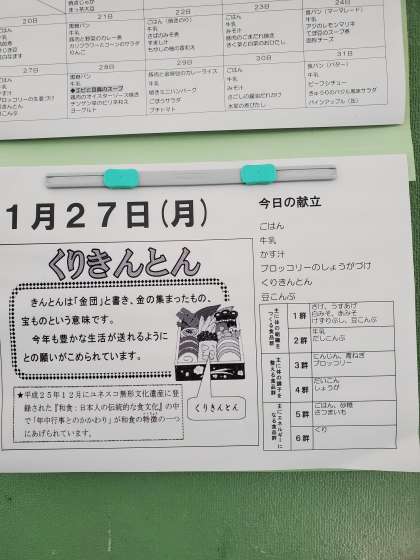 20日
21日
22日
23日
24日
黒食パン
牛乳
豚肉と野菜のカレー煮
カリフラワーとコーンのサラダ
りんご
ごはん
牛乳
さばのみそ煮
すまし汁
ごはん
牛乳
みそ汁
食パン（マーマレード）
牛乳
てぼ豆のスープ煮
固形チーズ
27日
28日
29日
30日
31日
ごはん
牛乳
かす汁
ブロッコリーの生姜づけ
くりきんとん
豆こんぶ
黒食パン
牛乳
◆エビと豆腐のスープ
鶏肉のオイスターソース焼き
チンゲン菜のピリ辛和え
ヨーグルト
豚肉と金時豆のカレーライス
牛乳
焼きミニハンバーグ
ごぼうサラダ
プチトマト
ごはん
牛乳
みそ汁
さごしの醤油だれかけ
水菜の煮びたし
食パン（バター）
牛乳
ビーフシチュー
きゅうりのバジル風味サラダ
パインアップル（缶）
1月27日(月)
くりきんとん
きんとんは「金団」と書き、金の集まったもの、
宝ものという意味です。
今年も豊かな生活が送れるように
との願いがこめられています。
★平成25年12月にユネスコ無形文化遺産に登
録された『和食：日本人の伝統的な食文化』の中
で「年中行事とのかかわり」が和食の特徴の一つ
にあげられています。
くりきんとん
今日の献立
ごはん
牛乳
かす汁
ブロッコリーのしょうがづけ
くりきんとん
豆こんぶ
主に体の組織を
つくる食品群
1群
さけ、うすあげ
白みそ、赤みそ
けずりぶし、豆こんぶ
2群
牛乳
だしこんぶ
主に体の調子を
整える食品群
3群
にんじん、青ねぎ
ブロッコリー
4群
だいこん
しょうが
主にエネルギーに
なる食品群
5群
ごはん、砂糖
さつまいも
6群
くり